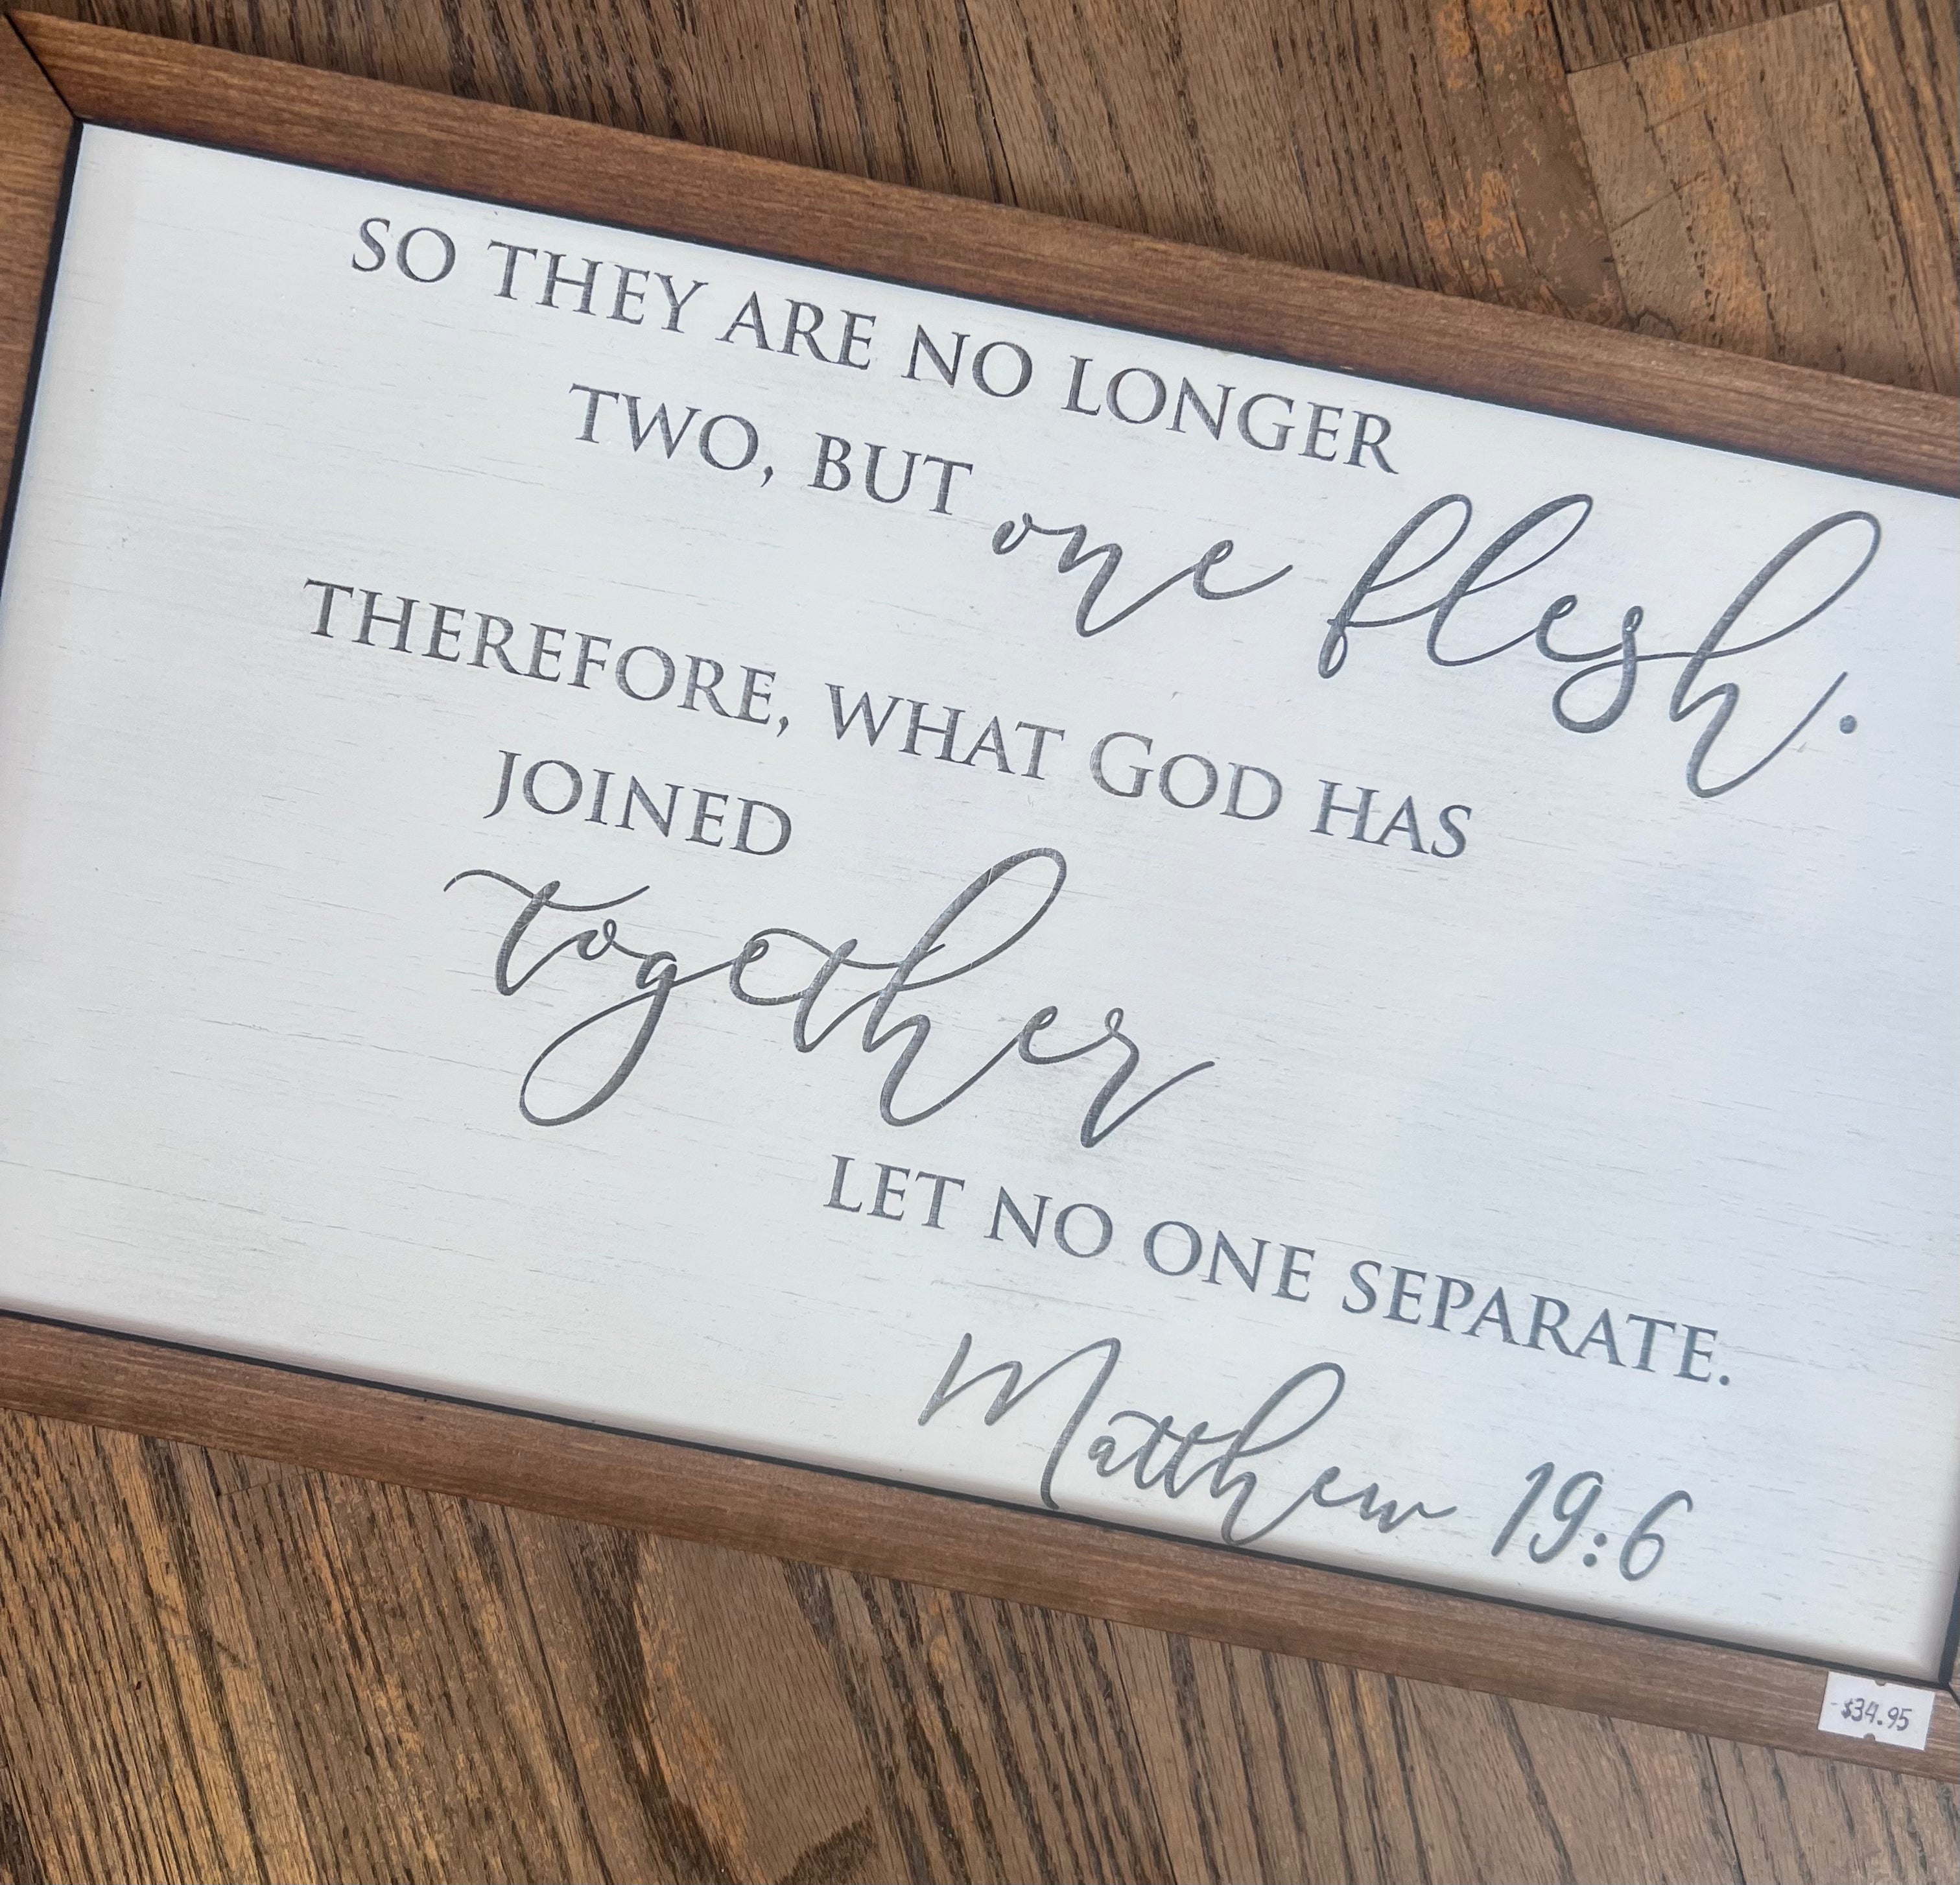 SO THEY ARE NO LONGER
TWO, BUT one flesh.
THEREFORE, WHAT GOD HAS
JOINED
together
LET NO ONE SEPARATE.
Matthew 19:6
-$34.95